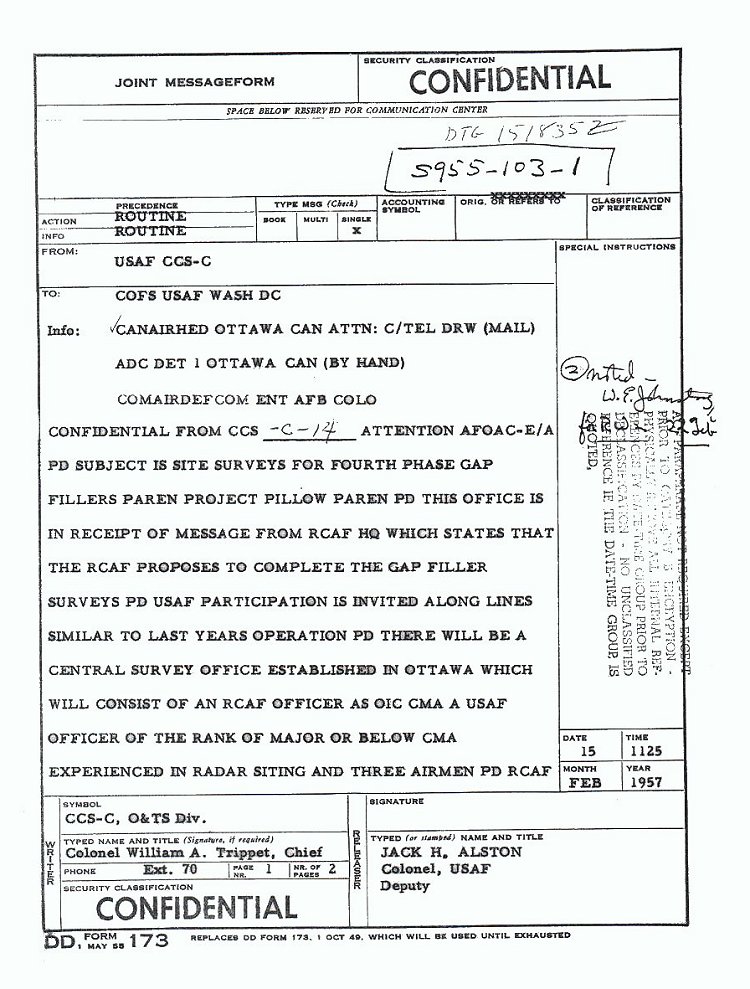 JOINT MESSAGEFORM
SECURITY CLASSIFICATION
CONFIDENTIAL
SPACE BELOW RESERVED FOR COMMUNICATION CENTER
DTG 151835Z
5955-103-1
PRECEDENCE
ACTION ROUTINE
INFO ROUTINE
TYPE MSG (Check)
BOOK MULTI SINGLE
X
ACCOUNTING SYMBOL
ORIG. OR REFERS TO
CLASSIFICATION OF REFERENCE
FROM:
USAF CCS-C
SPECIAL INSTRUCTIONS
TO: COFS USAF WASH DC
Info: ✓CANAIRHED OTTAWA CAN ATTN: C/TEL DRW (MAIL)
ADC DET 1 OTTAWA CAN (BY HAND)
COMAIRDEFCOM ENT AFB COLO
CONFIDENTIAL FROM CCS -C-14 ATTENTION AFOAC-E/A
PD SUBJECT IS SITE SURVEYS FOR FOURTH PHASE GAP
FILLERS PAREN PROJECT PILLOW PAREN PD THIS OFFICE IS
IN RECEIPT OF MESSAGE FROM RCAF HQ WHICH STATES THAT
THE RCAF PROPOSES TO COMPLETE THE GAP FILLER
SURVEYS PD USAF PARTICIPATION IS INVITED ALONG LINES
SIMILAR TO LAST YEARS OPERATION PD THERE WILL BE A
CENTRAL SURVEY OFFICE ESTABLISHED IN OTTAWA WHICH
WILL CONSIST OF AN RCAF OFFICER AS OIC CMA A USAF
OFFICER OF THE RANK OF MAJOR OR BELOW CMA
EXPERIENCED IN RADAR SITING AND THREE AIRMEN PD RCAF
② noted –
W.E. Johnston
22 Feb
PRIOR TO CATEGORY B ENCRYPTION -
PHYSICALLY REMOVE ALL INTERNAL REF-
ERENCES BY DATE-TIME GROUP PRIOR TO
DECLASSIFICATION - NO UNCLASSIFIED
REFERENCE IF THE DATE-TIME GROUP IS
QUOTED.
DATE 15
TIME 1125
MONTH FEB
YEAR 1957
WRITER
SYMBOL
CCS-C, O&TS Div.
TYPED NAME AND TITLE (Signature, if required)
Colonel William A. Trippet, Chief
PHONE Ext. 70 PAGE NR. 1 NR. OF PAGES 2
SECURITY CLASSIFICATION
CONFIDENTIAL
RELEASER
SIGNATURE
TYPED (or stamped) NAME AND TITLE
JACK H. ALSTON
Colonel, USAF
Deputy
DD FORM 1 MAY 55 173 REPLACES DD FORM 173, 1 OCT 49, WHICH WILL BE USED UNTIL EXHAUSTED